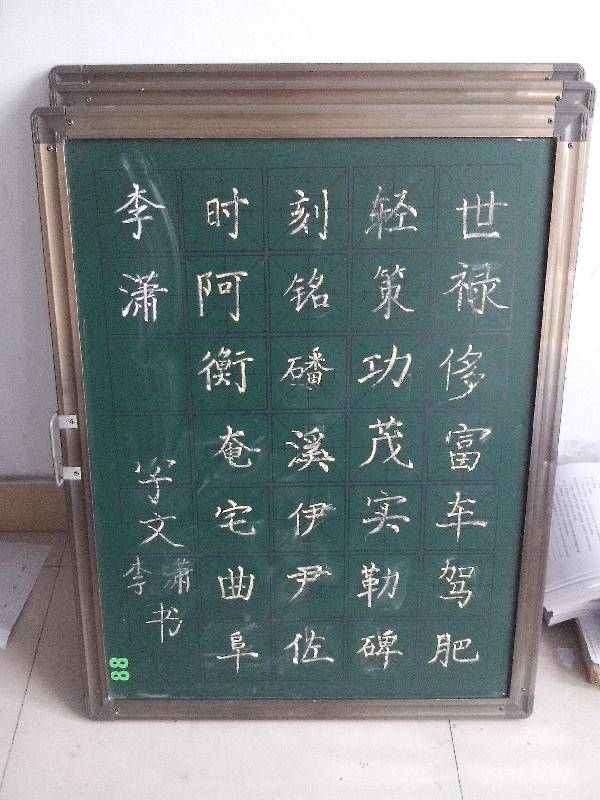 世禄侈富车驾肥
轻策功茂实勒碑
刻铭磻溪伊尹佐
时阿衡奄宅曲阜
李潇
字文
李潇书
88